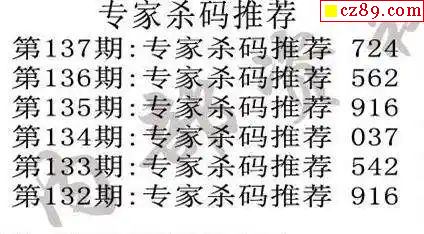 专家杀码推荐
cz89.com
第137期:专家杀码推荐 724
第136期:专家杀码推荐 562
第135期:专家杀码推荐 916
第134期:专家杀码推荐 037
第133期:专家杀码推荐 542
第132期:专家杀码推荐 916